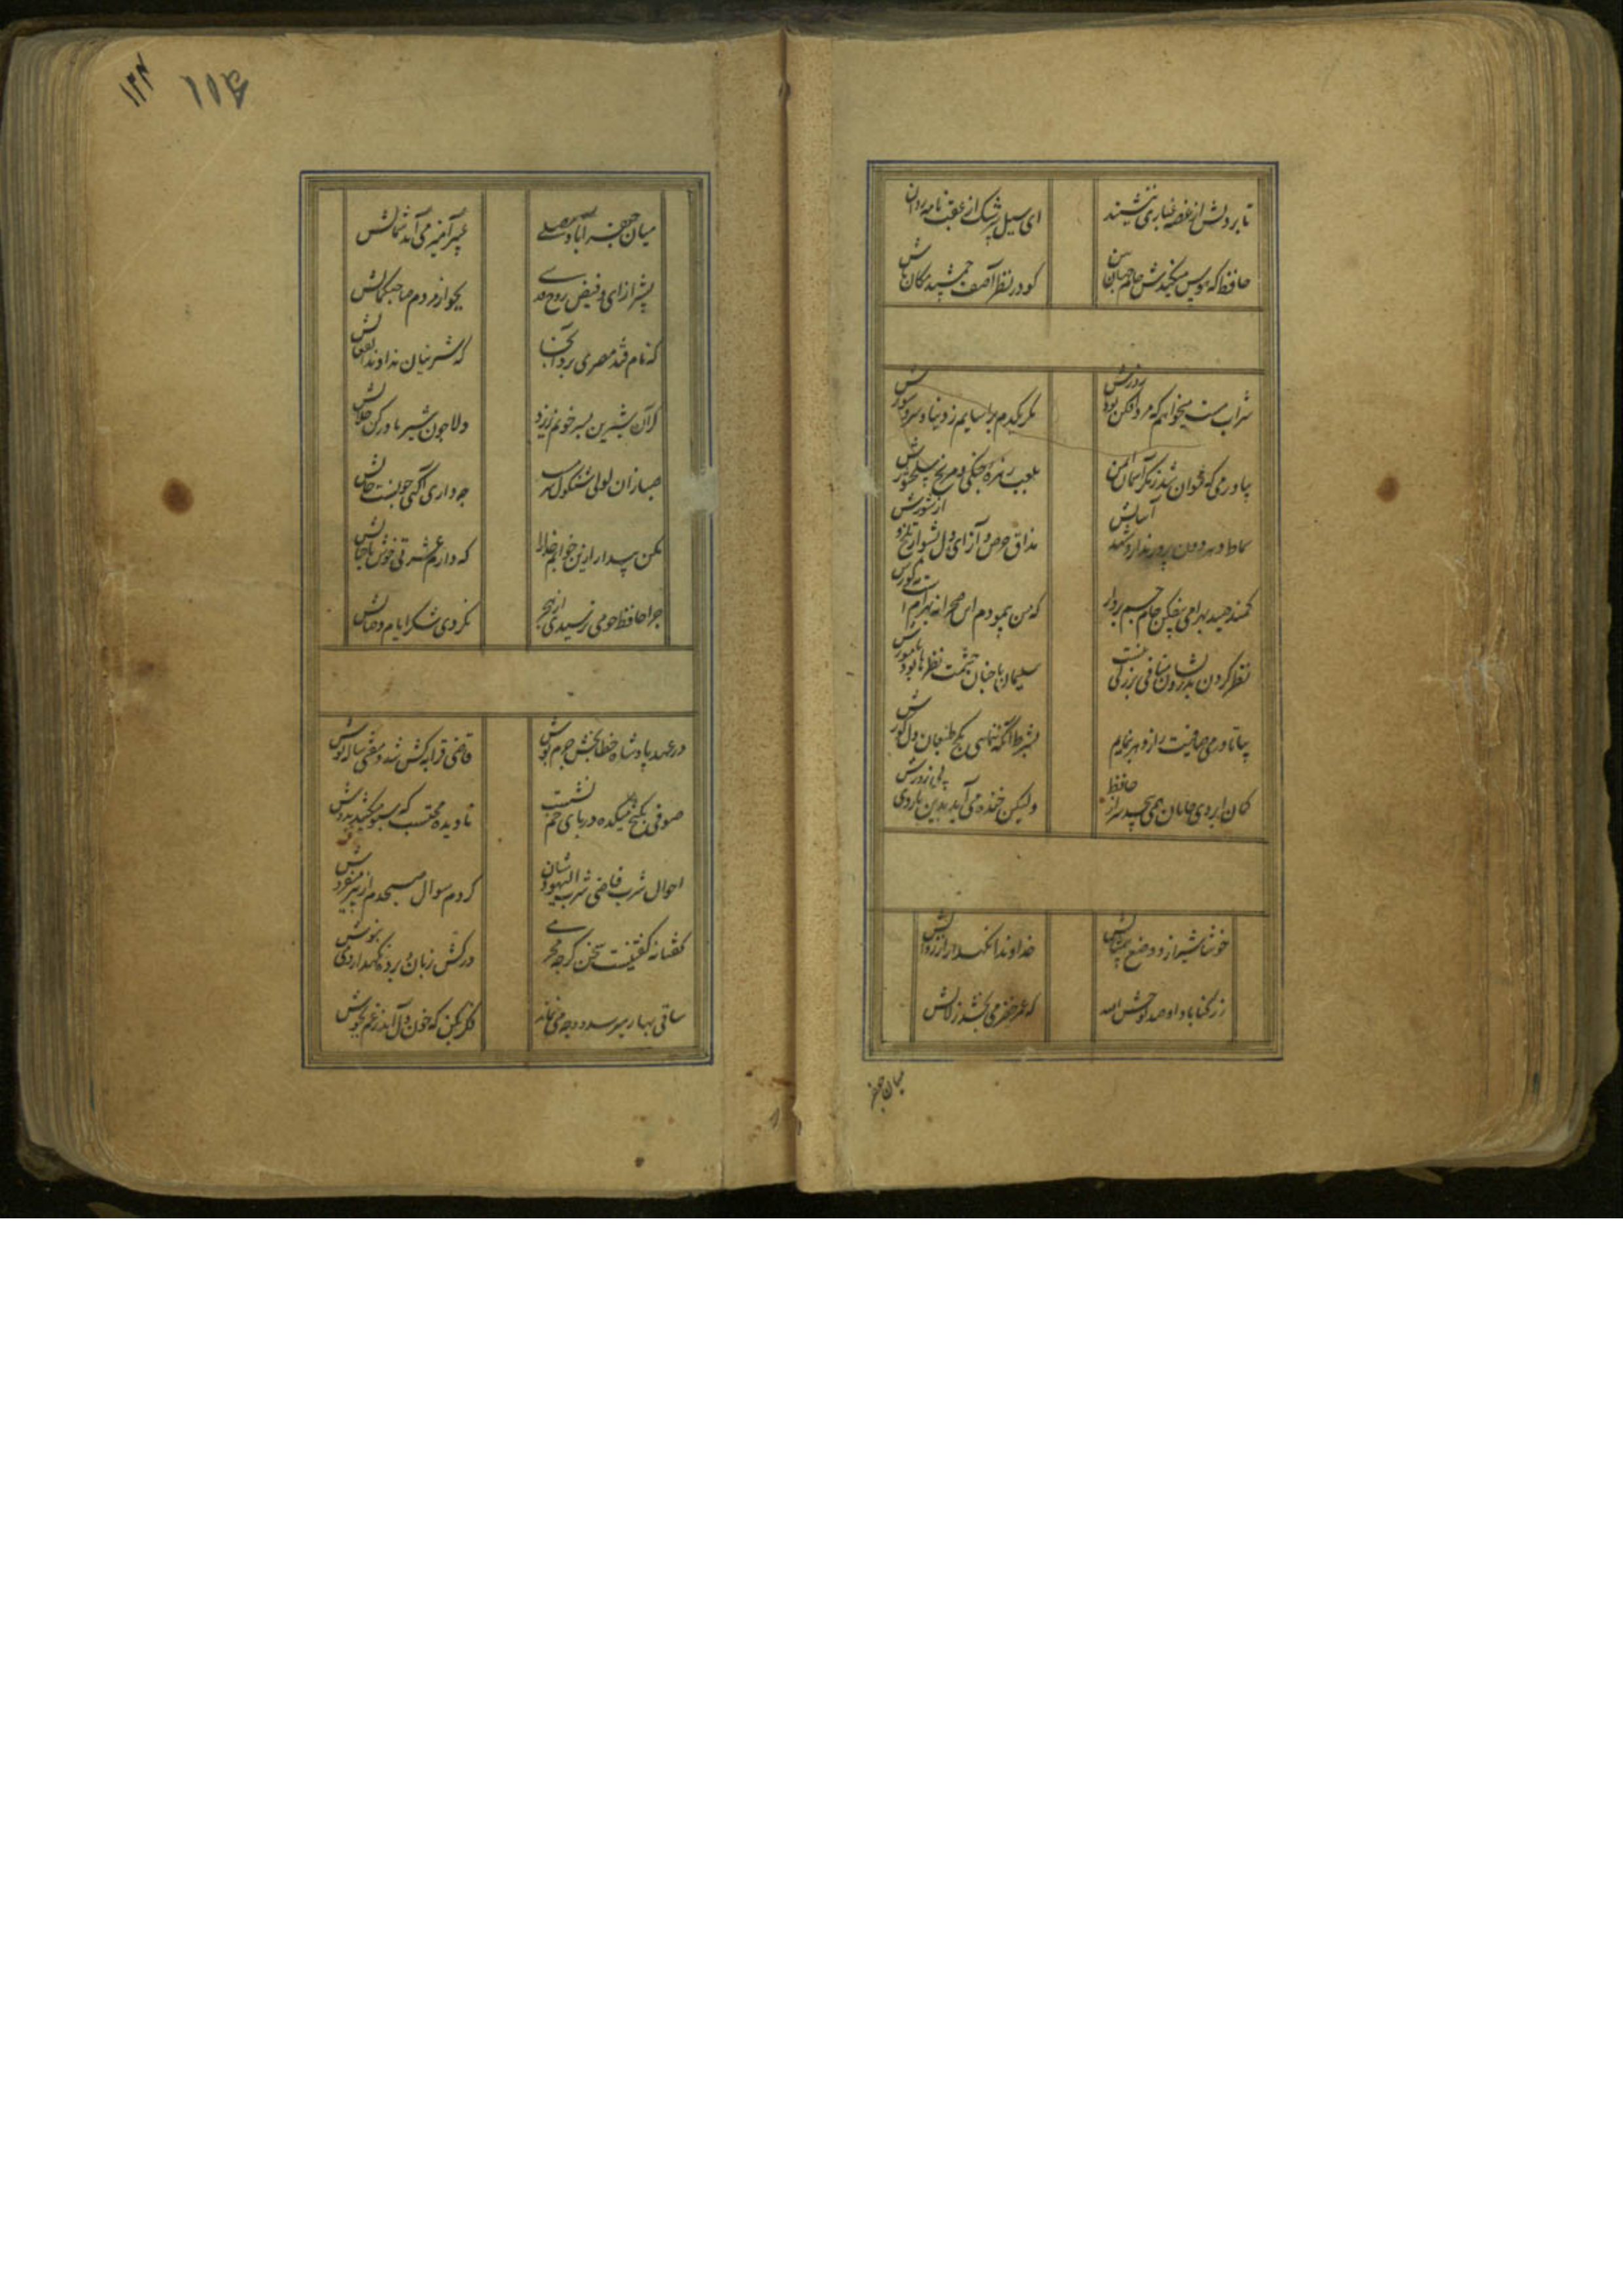 تا بر دلش از غصه غباری ننشیند
ای سیل سرشک از عقب نامه روان باش
حافظ که هوس میکندش جام جهان بین
کو در نظر آصف جمشید مکان باش
شراب مست میخواهم که مرد افکن بود زورش
مگر یکدم براسایم ز دنیا و شر و شورش
بیاور می که نتوان شد ز مکر آسمان ایمن
بلعب زهره چنکی و مریخ سلحشورش
سماط دهر دون پرور ندارد شهد آسایش
مذاق حرص و آز ای دل بشو از تلخ و از شورش
کمند صید بهرامی بیفکن جام جم بردار
که من پیمودم این صحرا نه بهرام است نه کورش
نظر کردن بدرویشان منافی بزرگی نیست
سلیمان با چنان حشمت نظرها بود با مورش
بیا تا در می صافیت راز دهر بنمایم
بشرط آنکه ننمایی بکج طبعان دل کورش
کمان ابروی جانان نمی پیچد سر از حافظ
ولیکن خنده می آید بدین بازوی بی زورش
خوشا شیراز و وضع بیمثالش
خداوندا نکهدار از زوالش
ز رکناباد ما صد لوحش الله
که عمر خضر می بخشد زلالش
میان جعفر
۱۲۴
۱۵۴
میان جعفرآباد و مصلی
عبیر آمیز می آید شمالش
بشیراز ای و فیض روح قدسی
بجوار مردم صاحبکمالش
که نام قند مصری برد آنجا
که شیرینان ندادند انفعالش
کر آن شیرین پسر خونم بریزد
دلا چون شیر مادر کن حلالش
صبا زان لولی شنکول سرمست
چه داری آکهی چونست حالش
مکن بیدار ازین خوابم خدا را
که دارم عشرتی خوش با خیالش
چرا حافظ چو می ترسیدی از هجر
نکردی شکر ایام وصالش
در عهد پادشاه خطابخش جرم پوش
قاضی قرابه کش شد و مفتی پیاله نوش
صوفی بکنج میکده در پای خم نشست
تا دیده محتسب که سبو میکشد بدوش
احوال شیخ قاضی و شرب الیهودشان
کردم سوال صبحدم از پیر میفروش
کفتا نه کفتنیست سخن کرچه محرمی
درکش زبان و پرده نکهدار و می بنوش
ساقی بهار میرسد و وجه می نماند
فکری بکن که خون دل آمد ز غم بجوش